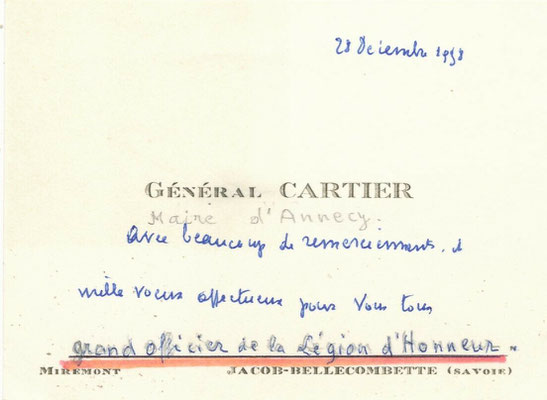 28 Décembre 1958
GÉNÉRAL CARTIER
Maire d'Annecy.
Avec beaucoup de remerciements. et
mille voeux affectueux pour Vous tous
grand officier de la Légion d'Honneur.
MIREMONT JACOB-BELLECOMBETTE (SAVOIE)